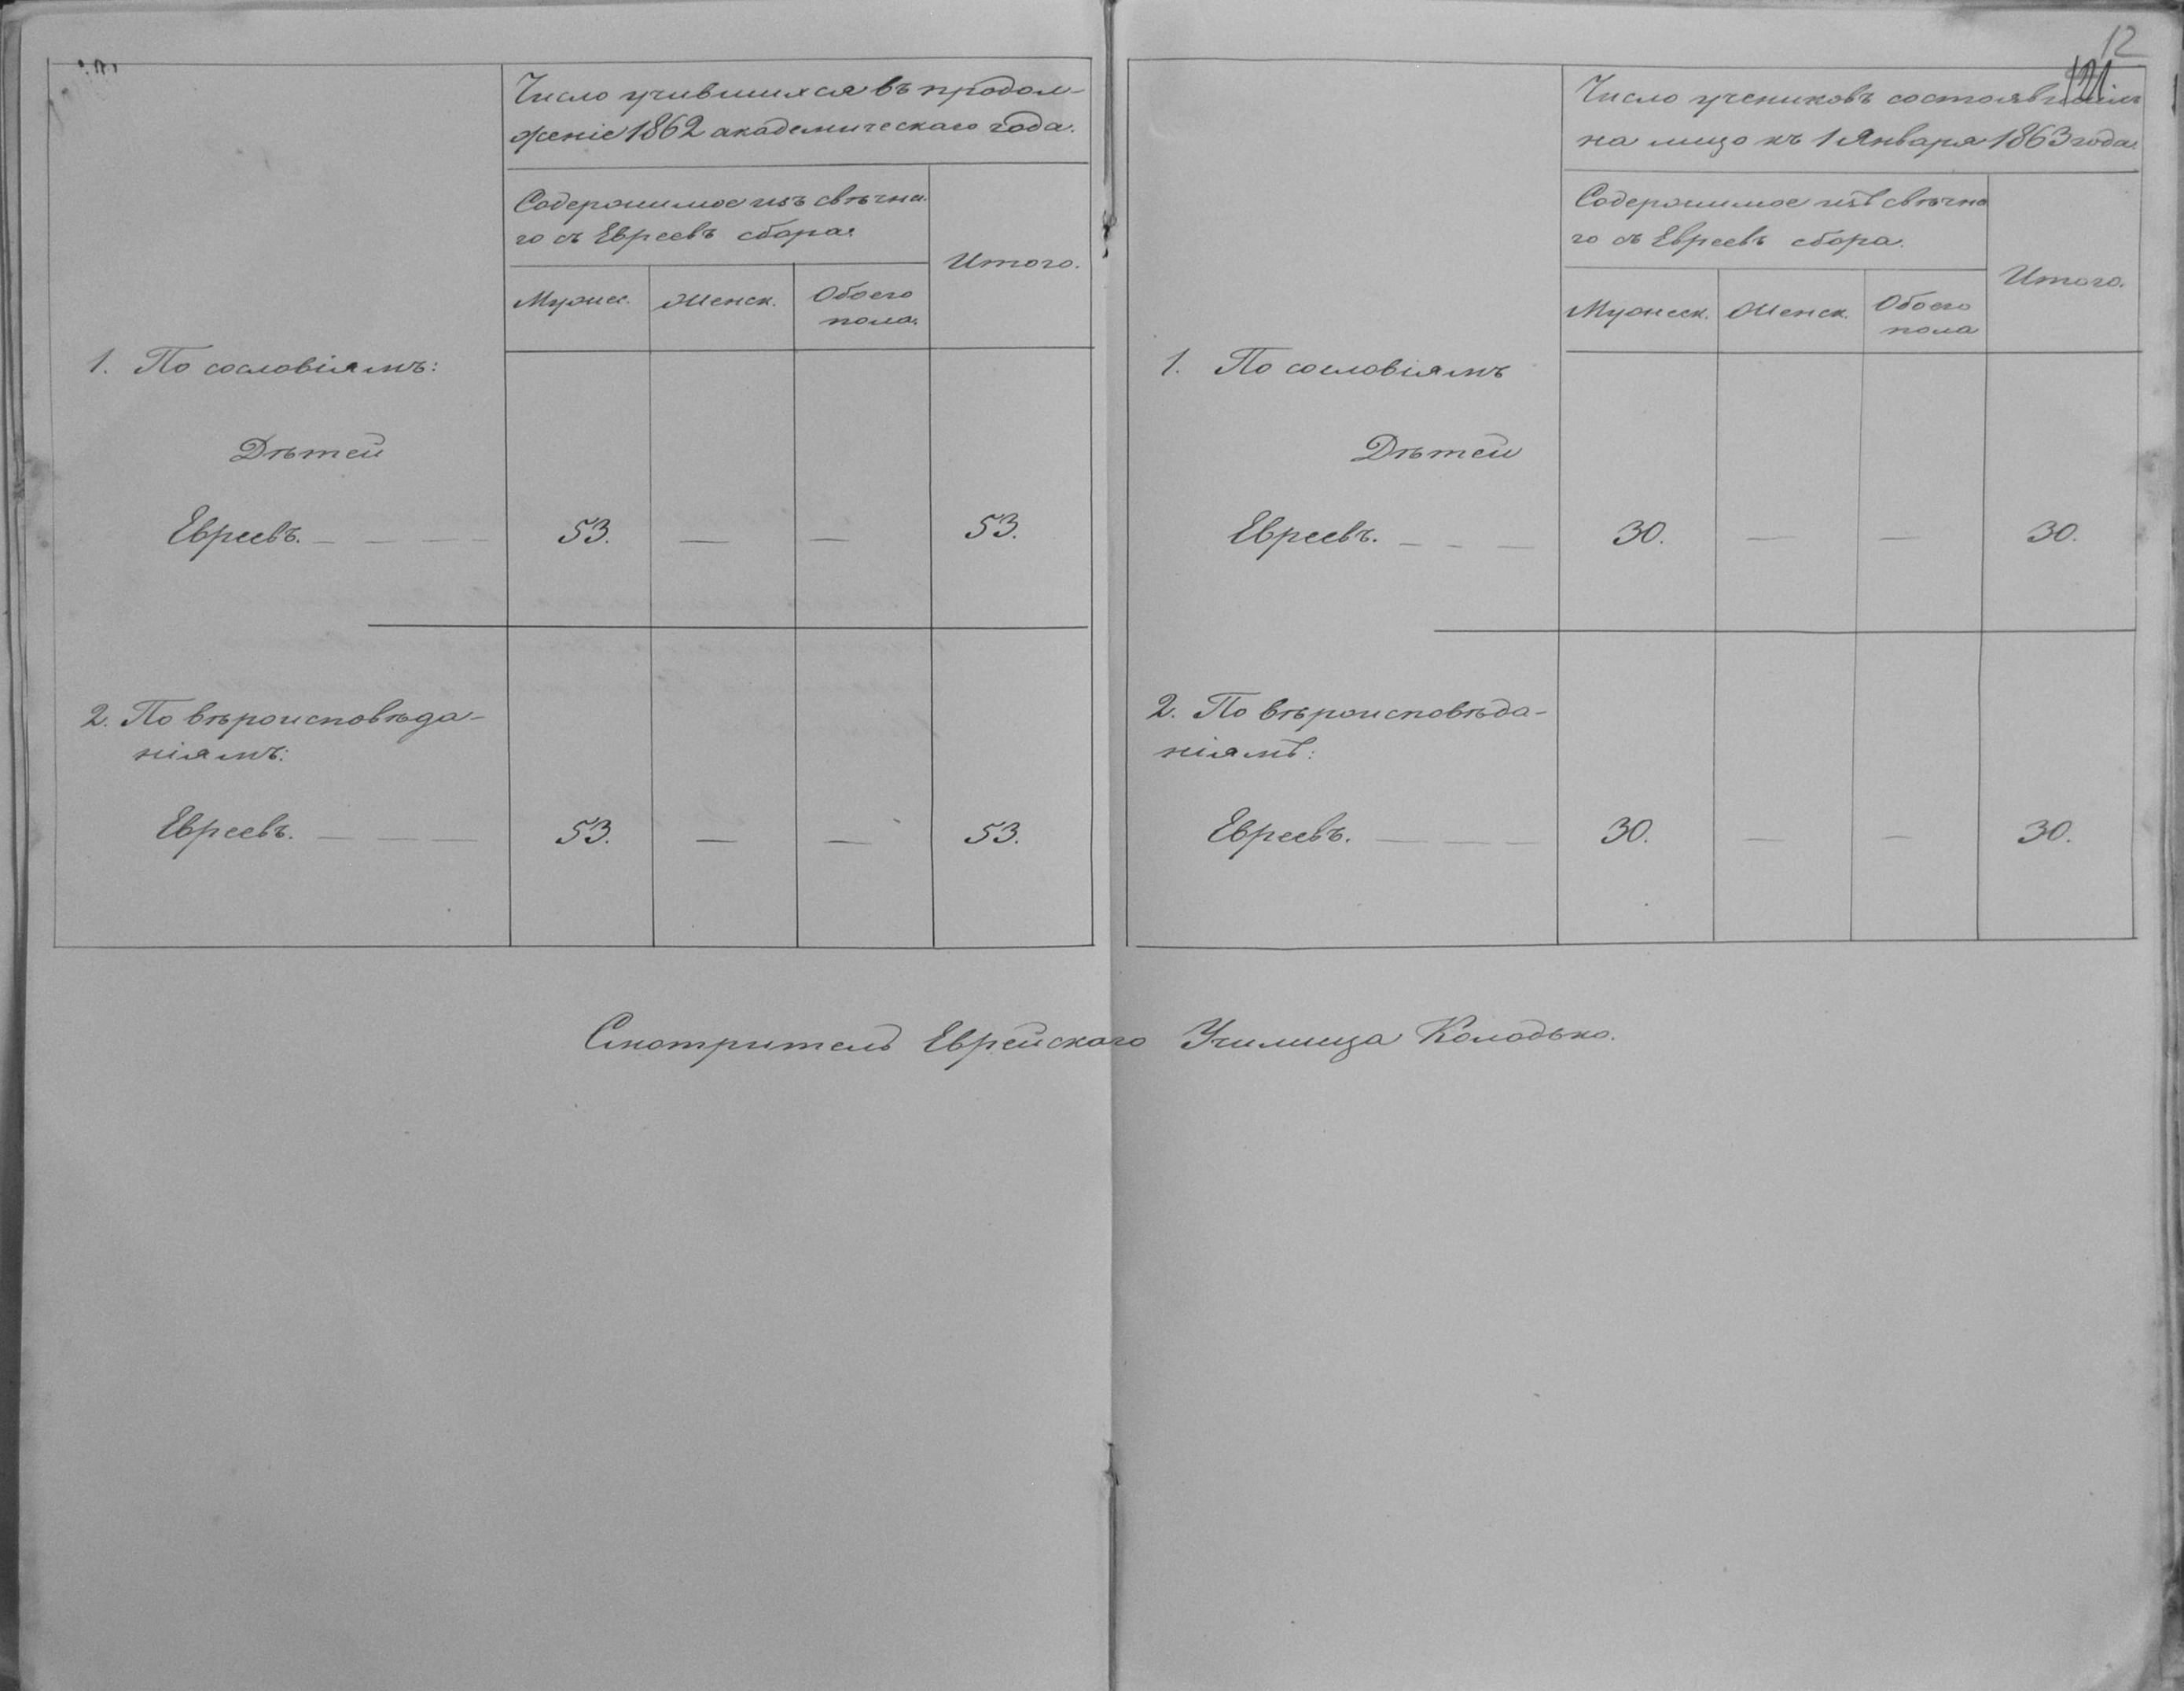 Число учившихся въ продол-
женіе 1862 академическаго года.
Содержимое изъ свѣчна-
го съ Евреевъ сбора.
Итого.
Мужск.
Женск.
Обоего
пола.
1. По сословіямъ:
Дѣтей
Евреевъ. — — — 53. — — 53.
2. По вѣроисповѣда-
ніямъ:
Евреевъ. — — — 53. — — 53.
12
Число учениковъ состоявшихъ
на лицо къ 1 Января 1863 года.
Содержимое изъ свѣчна
го съ Евреевъ сбора.
Итого.
Мужеск.
Женск.
Обоего
пола
1. По сословіямъ
Дѣтей
Евреевъ. — — — 30. — — 30.
2. По вѣроисповѣда-
ніямъ:
Евреевъ. — — — 30. — — 30.
Смотритель Еврейскаго Училища Колодько.